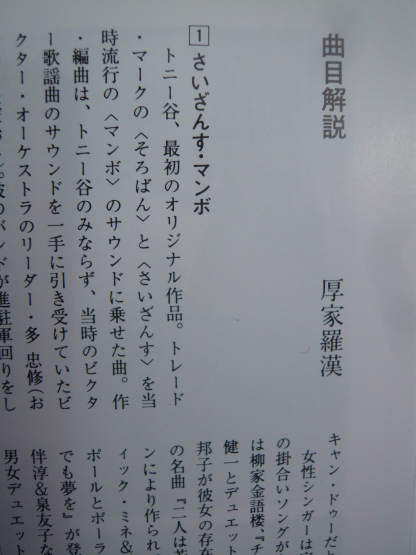 曲目解説
厚家羅漢
1 さいざんす・マンボ
トニー谷、最初のオリジナル作品。トレード
・マークの〈そろばん〉と〈さいざんす〉を当
時流行の〈マンボ〉のサウンドに乗せた曲。作
・編曲は、トニー谷のみならず、当時のビクタ
ー歌謡曲のサウンドを一手に引き受けていたビ
クター・オーケストラのリーダー・多 忠修(お
のバンドが進駐軍回りをし
キャン・ドゥーだ
女性シンガーは
の掛合いソングが
は柳家金語楼、『チ
健一とデュエット
邦子が彼女の存在
の名曲『二人は若
ンにより作られ
ィック・ミネ&
ポールとポーラ
でも夢を』が登
伴淳&泉友子な
男女デュエット